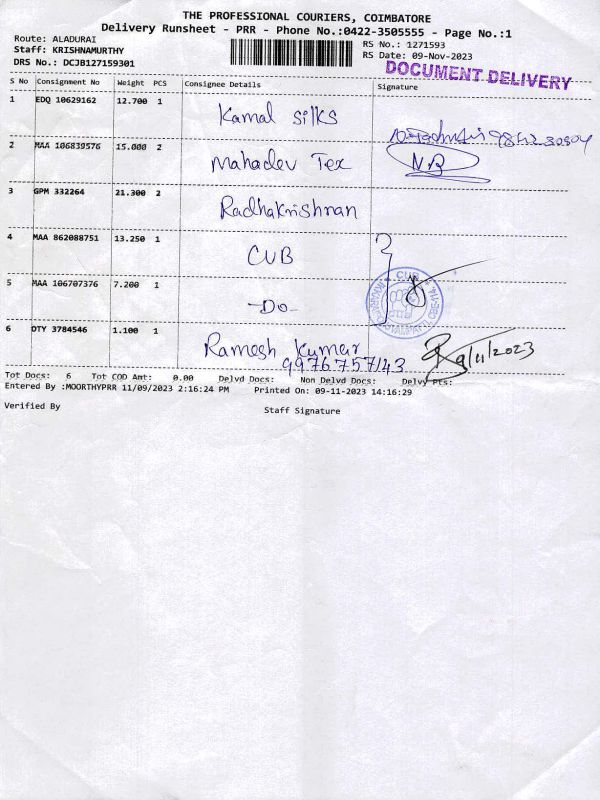 THE PROFESSIONAL COURIERS, COIMBATORE
Delivery Runsheet - PRR - Phone No.:0422-3505555 - Page No.:1
Route: ALADURAI
RS No.: 1271593
Staff: KRISHNAMURTHY
RS Date: 09-Nov-2023
DRS No.: DCJB127159301
DOCUMENT DELIVERY
S No Consignment No Weight PCS Consignee Details Signature
1 EDQ 10629162 12.700 1 Kamal silks
2 MAA 106839576 15.000 2 Mahadev Tex
3 GPM 332264 21.300 2 Radhakrishnan
4 MAA 862088751 13.250 1 CUB
5 MAA 106707376 7.200 1 -Do-
CUB
6 DTY 3784546 1.100 1 Ramesh Kumar
9976757143 9/11/2023
Tot Docs: 6 Tot COD Amt: 0.00 Delvd Docs: Non Delvd Docs: Delvy Pts:
Entered By :MOORTHYPRR 11/09/2023 2:16:24 PM Printed On: 09-11-2023 14:16:29
Verified By Staff Signature